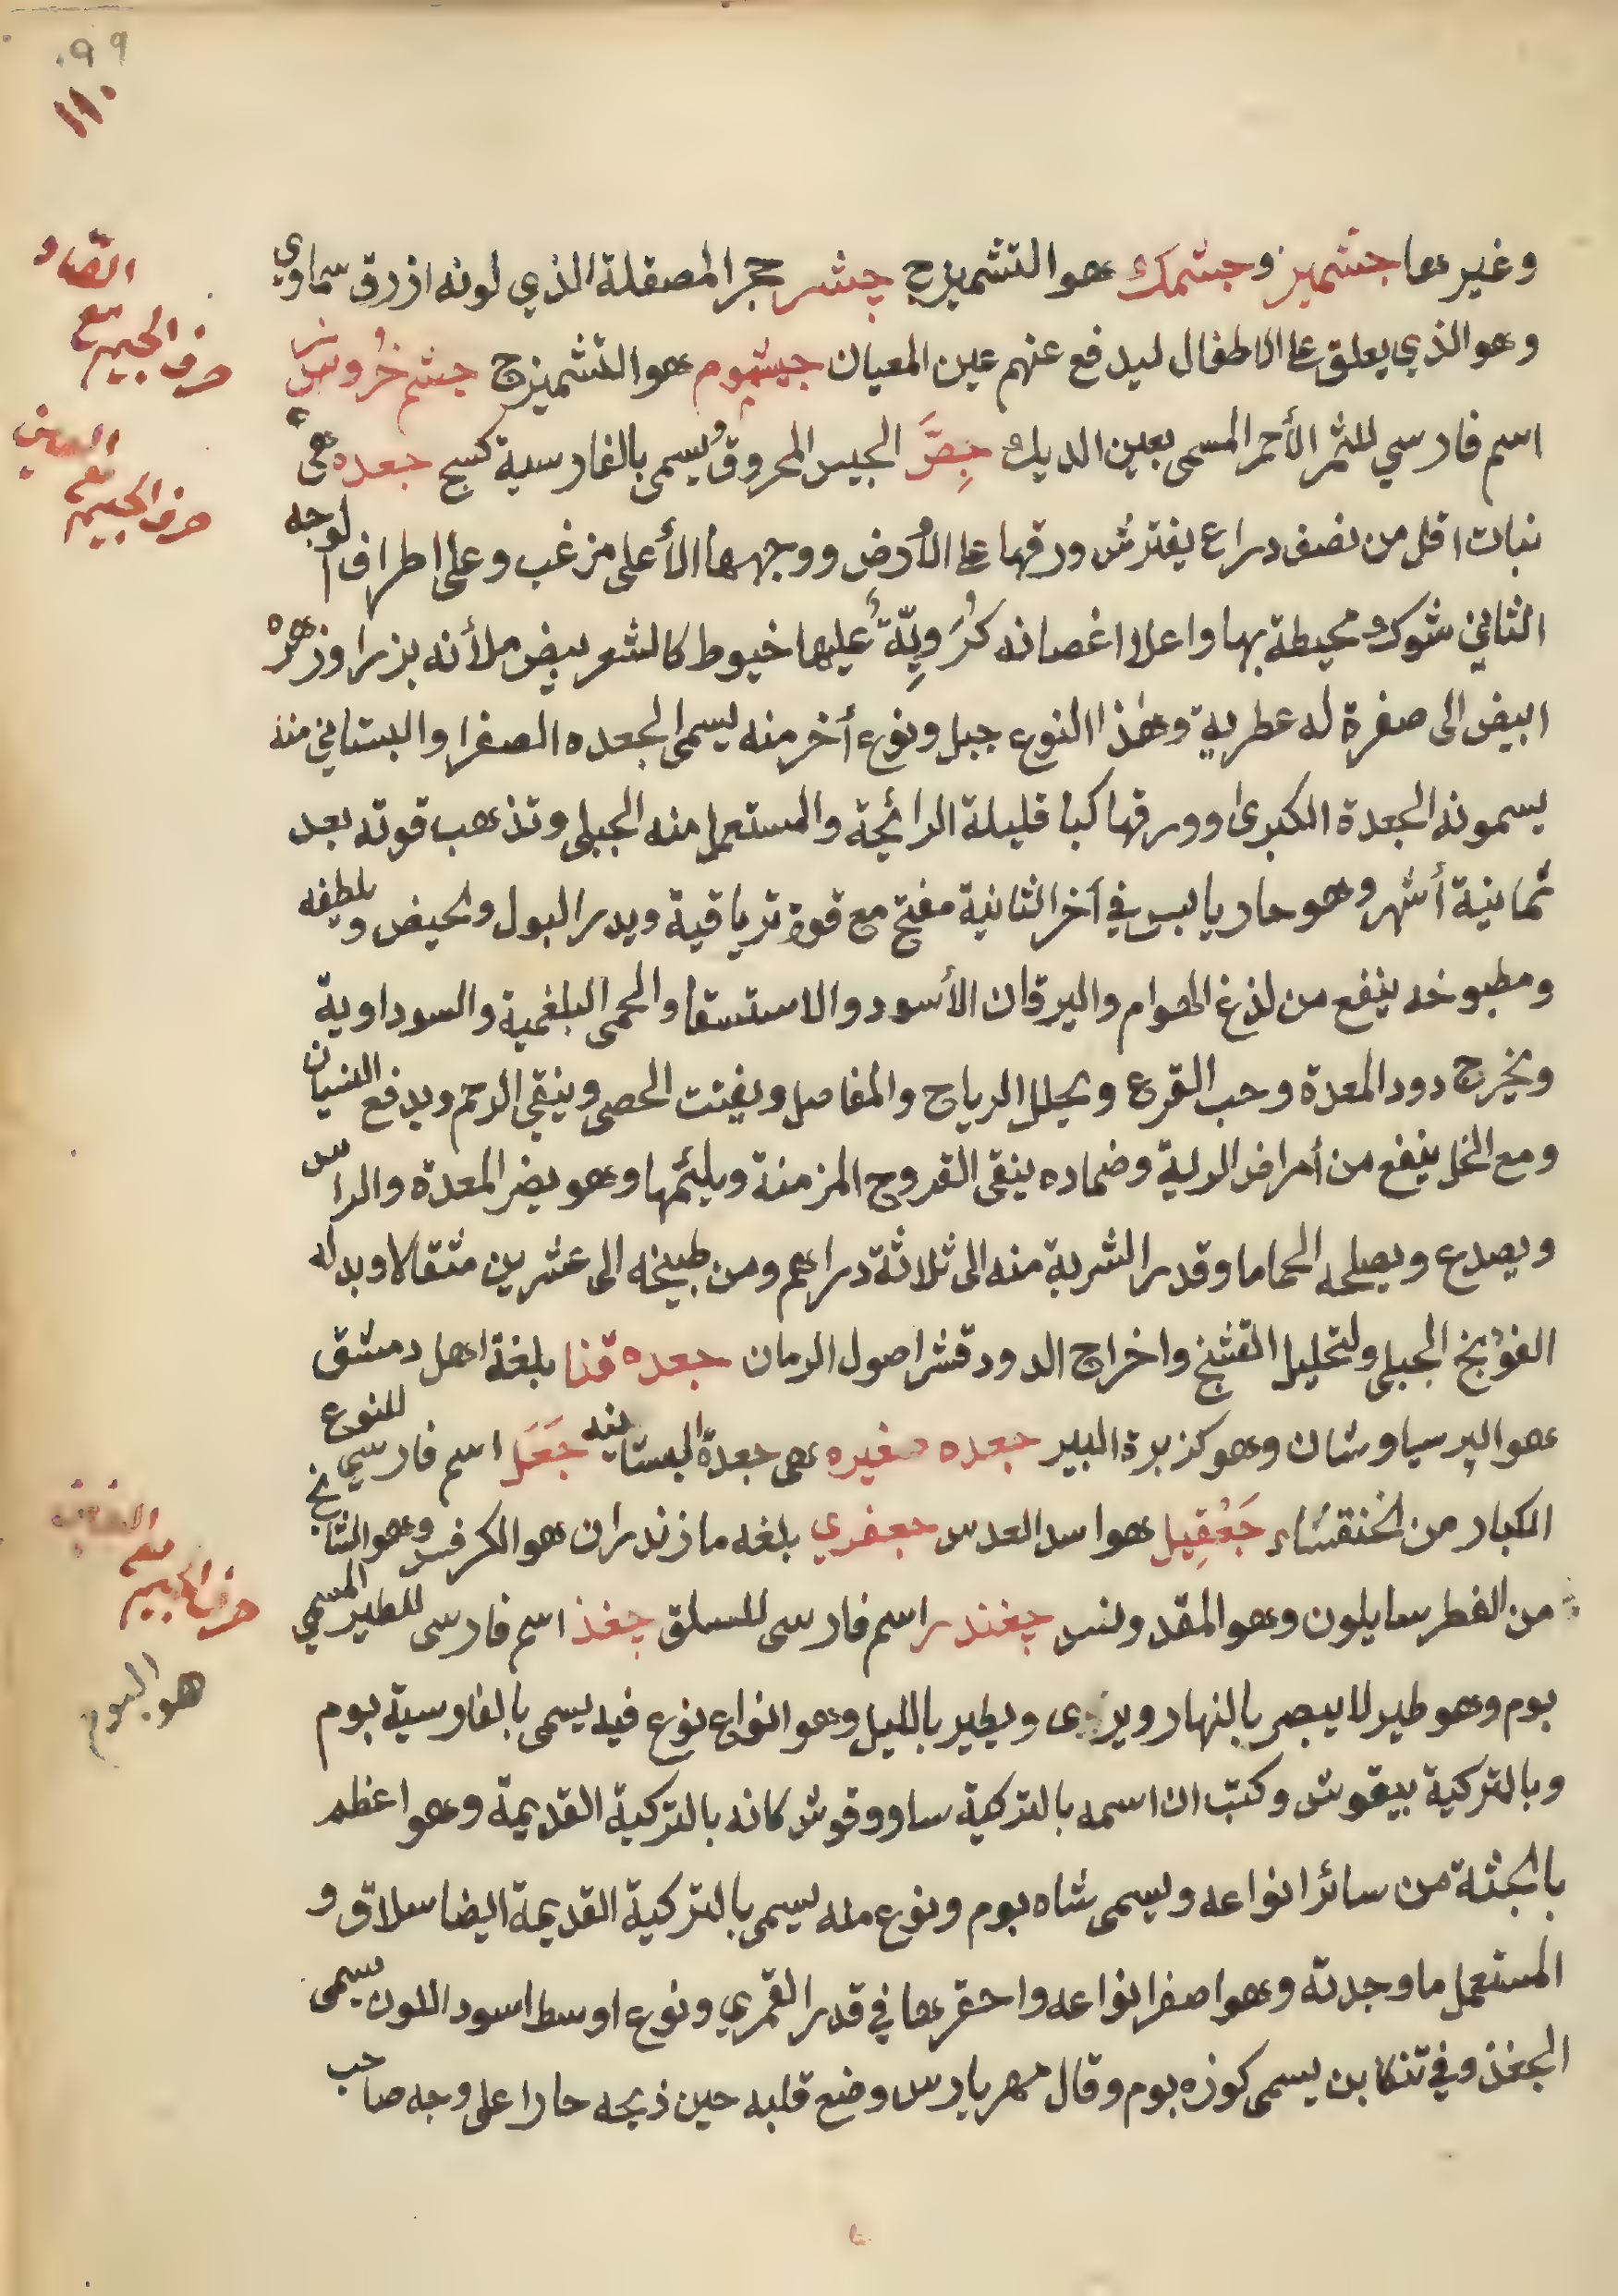 ٠٩٩
١١٠
وغيرها جشميز وجشمك هو التشميزج چشر حجر المصقلة الذي لونه ازرق سماوي
الصاد
مع
حرف الجيم
وهو الذي يعلق على الاطفال ليدفع عنهم عين المعيان جيشوم هو التشميزج جشم خروس
اسم فارسي للثمر الأحمر المسمى بعين الديك جصّ الجبس المحروق ويسمى بالفارسية كسج جعده هي
العين
مع
حرف الجيم
نبات اقل من نصف دراع يفترش ورقها على الأرض ووجهها الأعلى مزغب وعلى اطراف الوجه
الثاني شوك محيطة بها واعلا اغصانه كُرَوِيّةٌ عليها خيوط كالشعر بيض ملأنه بزرا وزهره
ابيض الى صفرة له عطرية وهذا النوع جبل ونوع أخر منه يسمى الجعده الصفرا والبستاني منه
يسمونه الجعدة الكبرى وورقها كبا قليلة الرائحة والمستعمل منه الجبلى وتذهب قوته بعد
ثمانية أشهر وهو حار يابس في أخر الثانية مفتح مع قوة ترياقية ويدر البول والحيض ويلطفه
ومطبوخه ينفع من لذغ الهوام واليرقان الأسود والاستسقا والحمى البلغمية والسوداوية
ويخرج دود المعدة وحب القرع ويحلل الرياح والمفاصل ويفتت الحصى وينقي الرحم ويدفع النسيان
ومع الخل ينفع من أمراض الرية وضماده ينقى القروح المزمنة ويلئمها وهو يضر المعدة والراس
ويصدع ويصلحه الحماما وقدر الشربة منه الى ثلاثة دراهم ومن طبيخه الى عشرين مثقالا وبدله
الفوٌنج الجبلى ولتحليل التشنج واخراج الدود قشر اصول الرمان جعده قنا بلغة اهل دمشق
هو البرسياوشان وهو كزبرة البير جعده صغيره هى جعدة البستانيه جَعَل اسم فارسي للنوع
الكبار من الخنفسَاء جَعْقِيل هو اسد العدس جعفري بلغه مازندران هو الكرفس وهو النتايج
الغين
مع
حرف الجيم
من الفطر ساليون وهو المقدولنس چغندر اسم فارسى للسلق چغذ اسم فارسى للطير المسمي
هو البوم
بوم وهو طير لا يبصر بالنهار ويرى ويطير بالليل وهو انواع نوع فيه يسمى بالفارسية بوم
وبالتركية بيقوش وكتب ان اسمه بالتركية ساووقوش كانه بالتركية القديمة وهو اعظم
بالجثة من سائر انواعه ويسمى شاه بوم ونوع منه يسمى بالتركية القديمة ايضا سلاق و
المستعمل ما وجدته وهو اصفر انواعه واحقرها في قدر القمري ونوع اوسط اسود اللون يسمى
الجغذ وفي تنكابن يسمى كوزه بوم وقال مهريارس وضع قلبه حين ذبحه حارا على وجه صاحب